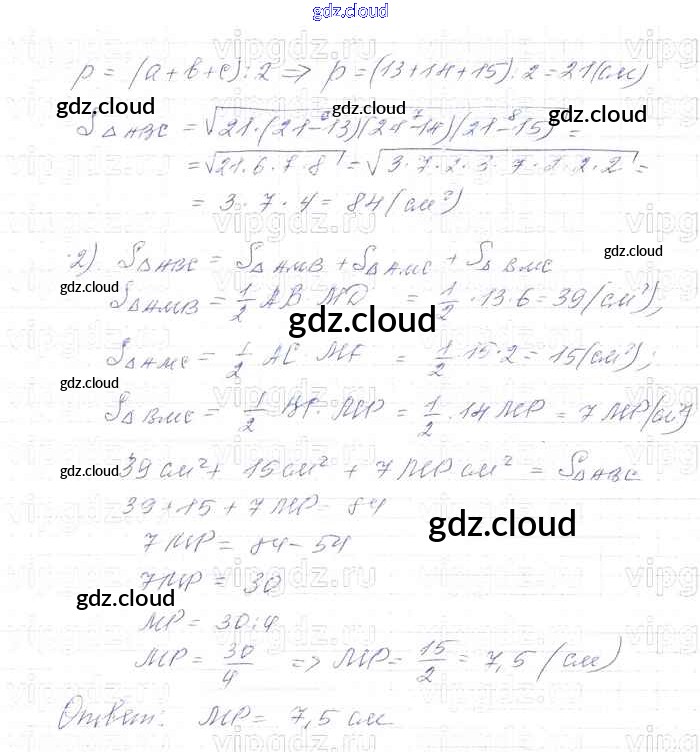 gdz.cloud
p = (a+b+c):2 => p=(13+14+15):2=21(см)
gdz.cloud gdz.cloud gdz.cloud
S△ABC = √21·(21-13)(21-14)(21-15) =
= √21·6·7·8 = √3·7·2·3·7·2·2·2 =
= 3·7·4 = 84(см²)
2) S△ABC = S△AMB + S△AMC + S△BMC
gdz.cloud
gdz.cloud
S△AMB = 1/2 AB MD = 1/2 · 13·6 = 39(см²);
gdz.cloud
S△AMC = 1/2 AC MF = 1/2 · 15·2 = 15(см²);
gdz.cloud
S△BMC = 1/2 · MP = 1/2 · 14 MP = 7 MP(см²)
gdz.cloud
39 см² + 15 см² + 7 MP см² = S△ABC
39+15+7 MP = 84
gdz.cloud
7 MP = 84-54
7 MP = 30
gdz.cloud
MP = 30:4
MP = 30/4 => MP = 15/2 = 7,5 (см)
Ответ: MP = 7,5 см